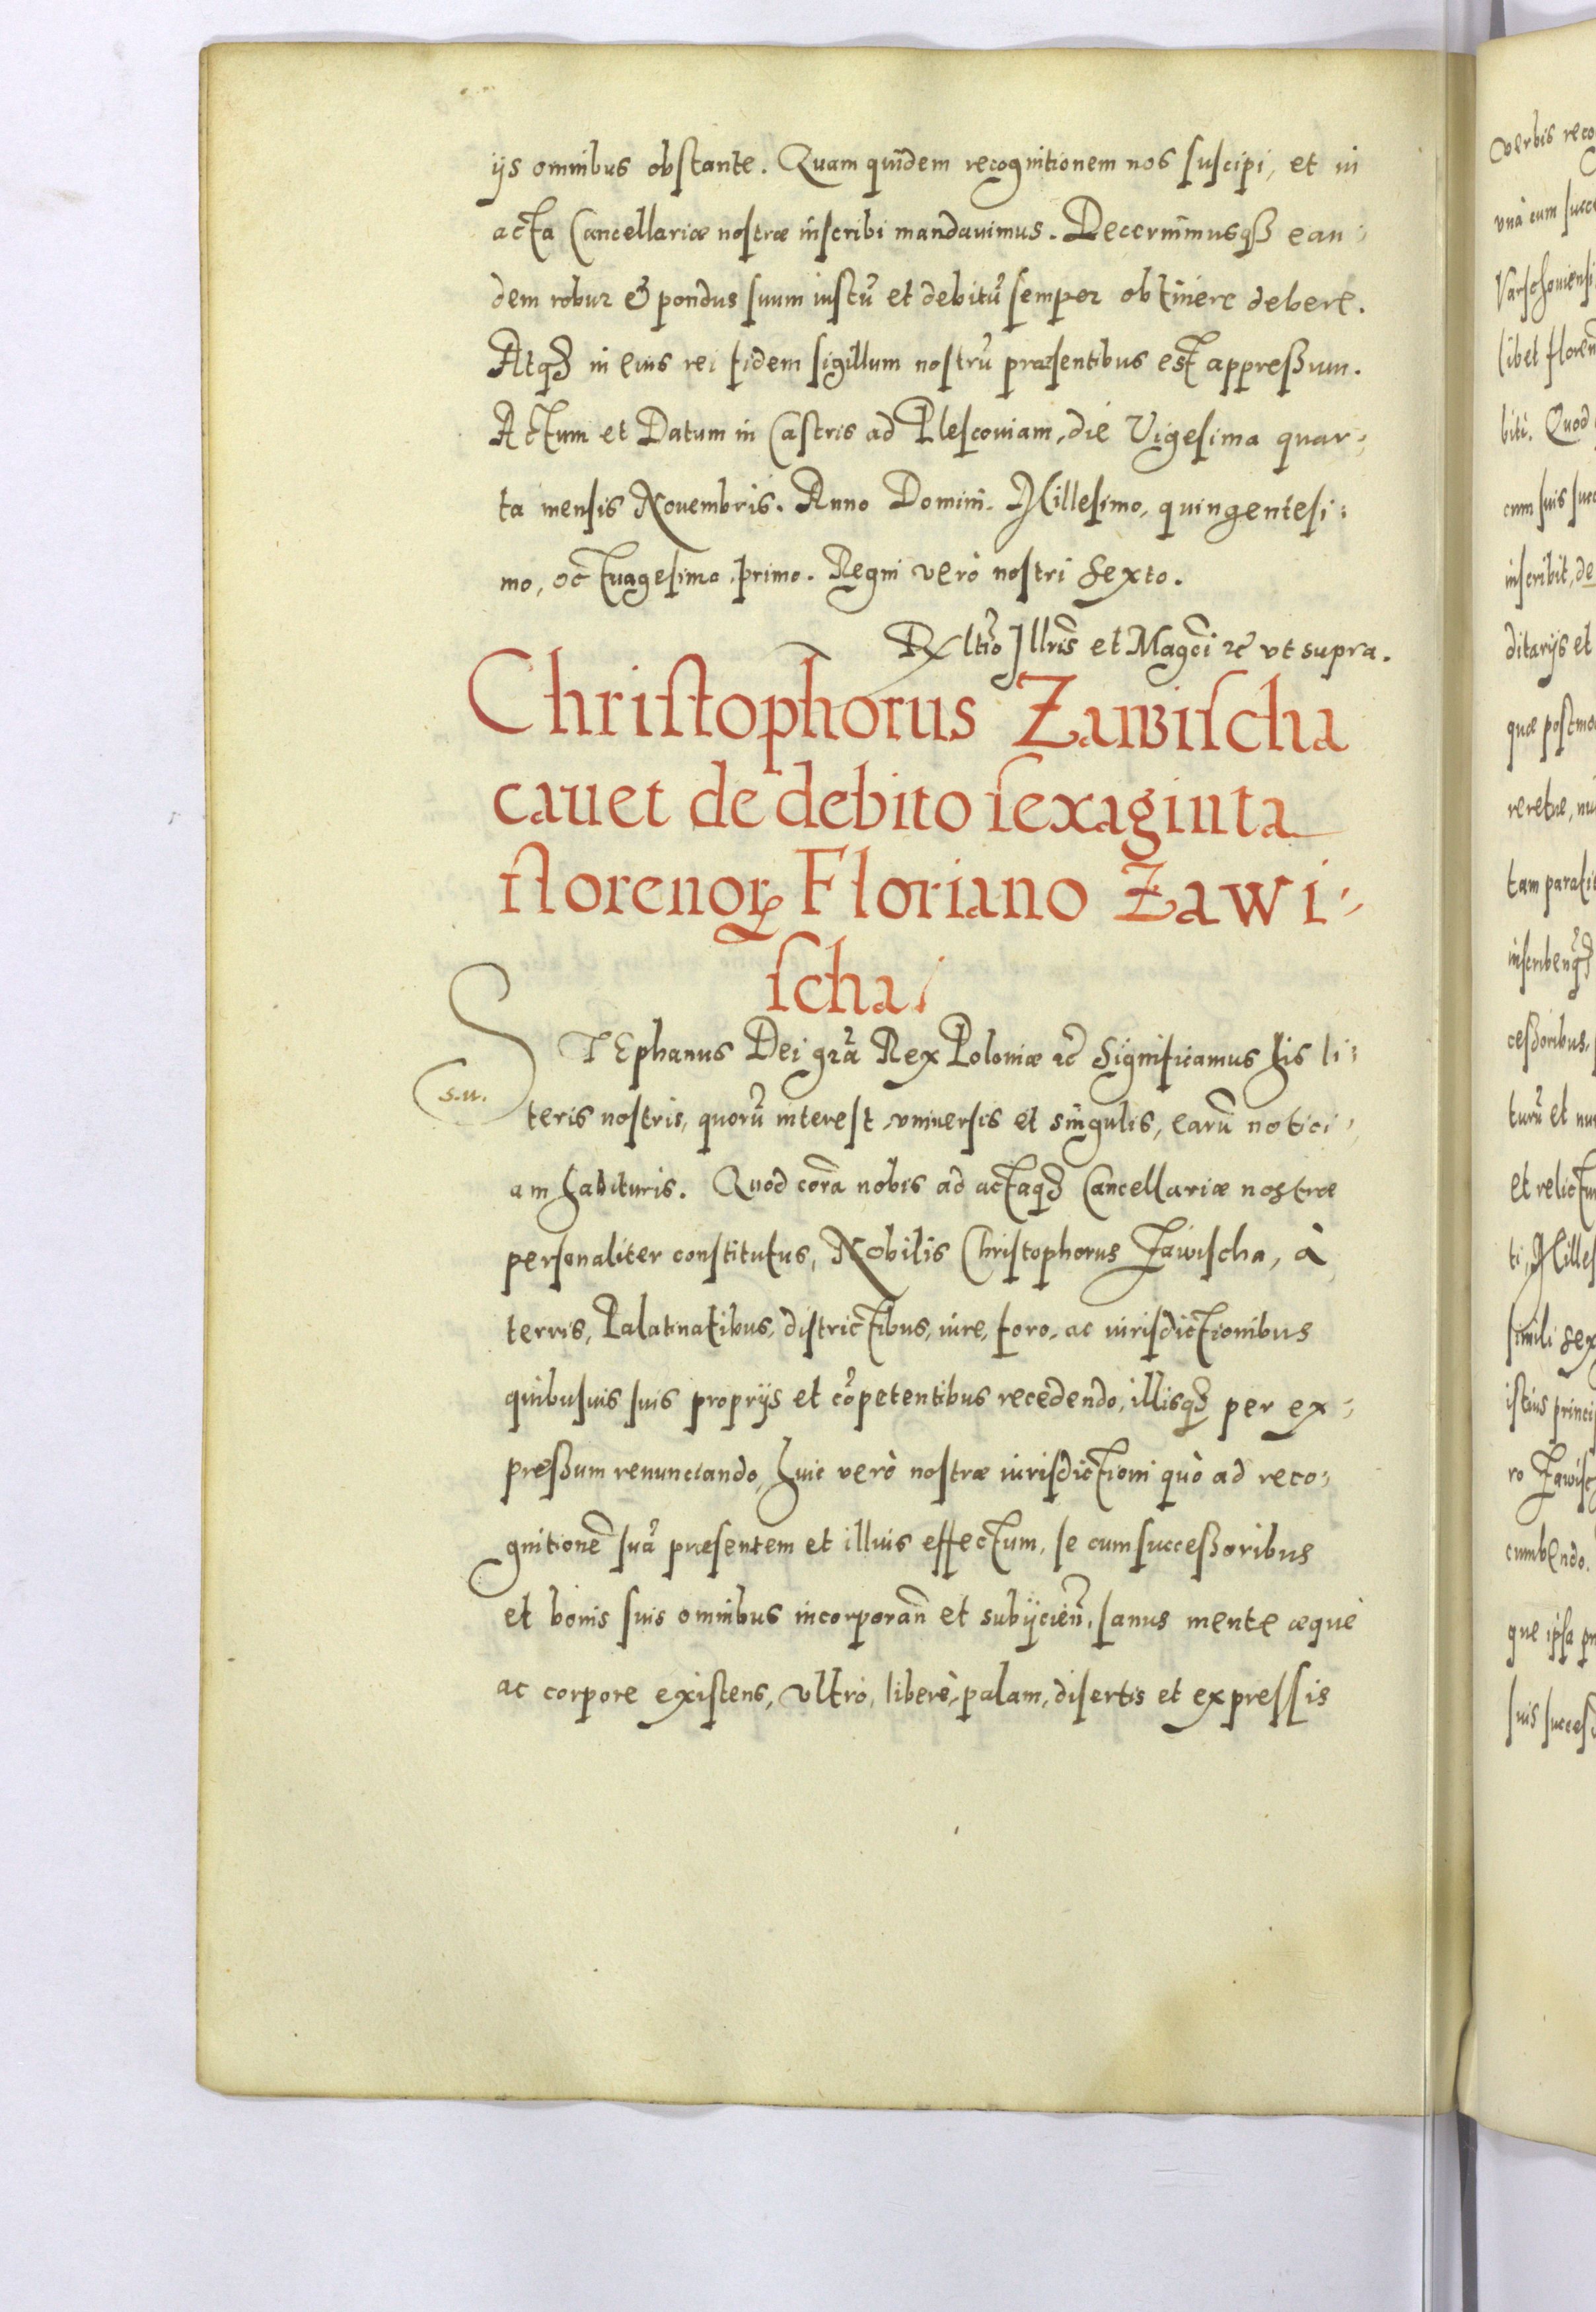 ijs omnibus obstante. Quam quidem recognitionem nos suscipi, et in
acta Cancellariæ nostræ inscribi mandauimus. Decernimusqß ean-
dem robur & pondus suum iustũ et debitũ semper obtinere debere.
Atqß in eius rei fidem sigillum nostrũ præsentibus est appreßum.
Actum et Datum in Castris ad Plescouiam, die Vigesima quar-
ta mensis Nouembris. Anno Domini. Millesimo, quingentesi-
mo, octuagesimo, primo. Regni verò nostri Sexto.
Rltio Jllris et Magci ꝛc vt supra.
Christophorus Zawischa
cauet de debito sexaginta
florenoꝝ Floriano Zawi-
scha.
STEphanus Dei grã Rex Poloniæ ꝛc Significamus his li-
s.n.
teris nostris, quorũ interest vniuersis et singulis, earũ notici-
am habituris. Quod corã nobis ad actaqß Cancellariæ nostræ
personaliter constitutus, Nobilis Christophorus Zawischa, à
terris, Palatinatibus, districtibus, iure, foro, ac iurisdictionibus
quibusuis suis proprijs et cõpetentibus recedendo, illisqß per ex-
preßum renunciando, huic verò nostræ iurisdictioni quò ad reco-
gnitionẽ suã præsentem et illius effectum, se cum succeßoribus
et bonis suis omnibus incorporañ et subijcieñ, sanus mente æquè
ac corpore existens, vltrò, liberè, palam, disertis et expressis
verbis reco
vnà cum succe
Varschouiensi
libet floren
biti. Quod
cum suis succ
inscribit, de
ditarijs et
quæ postmo
tam parati
ceßoribus,
et relictu
ti, Milles
simili sex
istius princi
ro Zawisc
cumbendo.
que ipsa pr
suis succeß